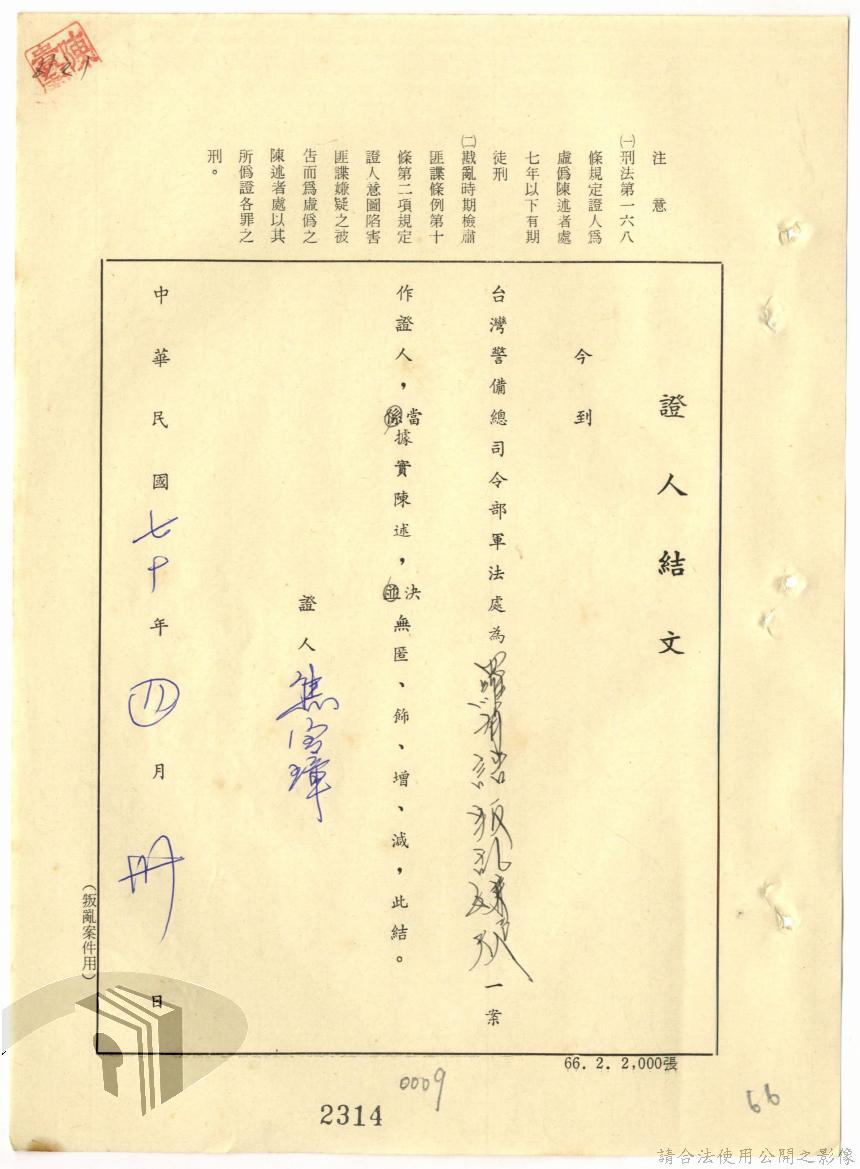 注意
㈠刑法第一六八
條規定證人為
虛偽陳述者處
七年以下有期
徒刑
㈡戡亂時期檢肅
匪諜條例第十
條第二項規定
證人意圖陷害
匪諜嫌疑之被
告而為虛偽之
陳述者處以其
所偽證各罪之
刑。
證人結文
今到
台灣警備總司令部軍法處為叛亂嫌疑一案
作證人，當據實陳述，決無匿、飾、增、減，此結。
證人 焦
中華民國七十年四月卅日
（叛亂案件用）
66. 2. 2,000張
0009
2314
66
請合法使用公開之影像